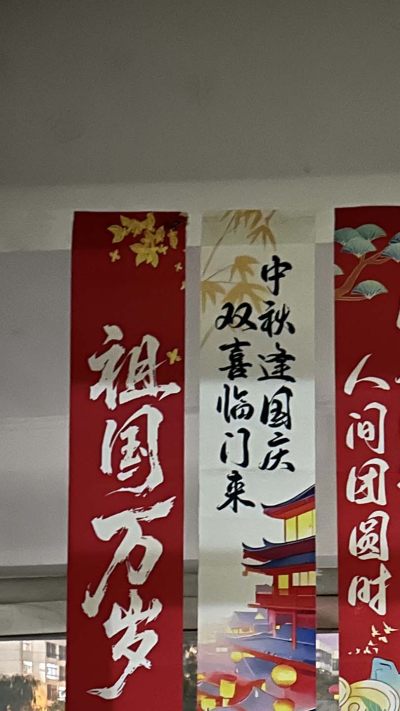 祖国万岁
中秋逢国庆
双喜临门来
人间团圆时